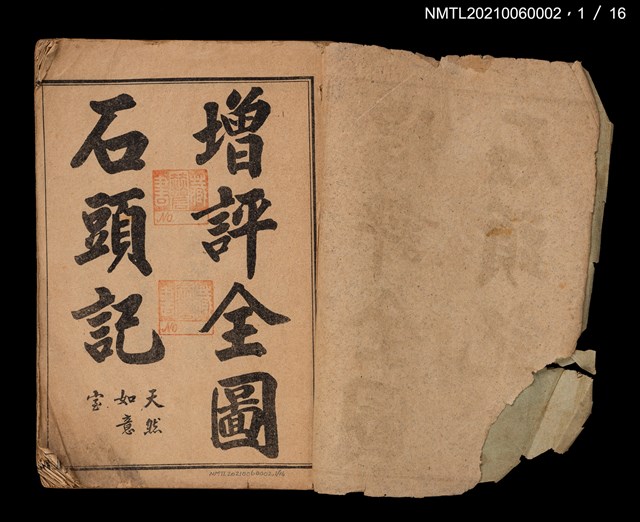 NMTL20210060002,1 / 16
增評全圖
石頭記
天然
如意
室